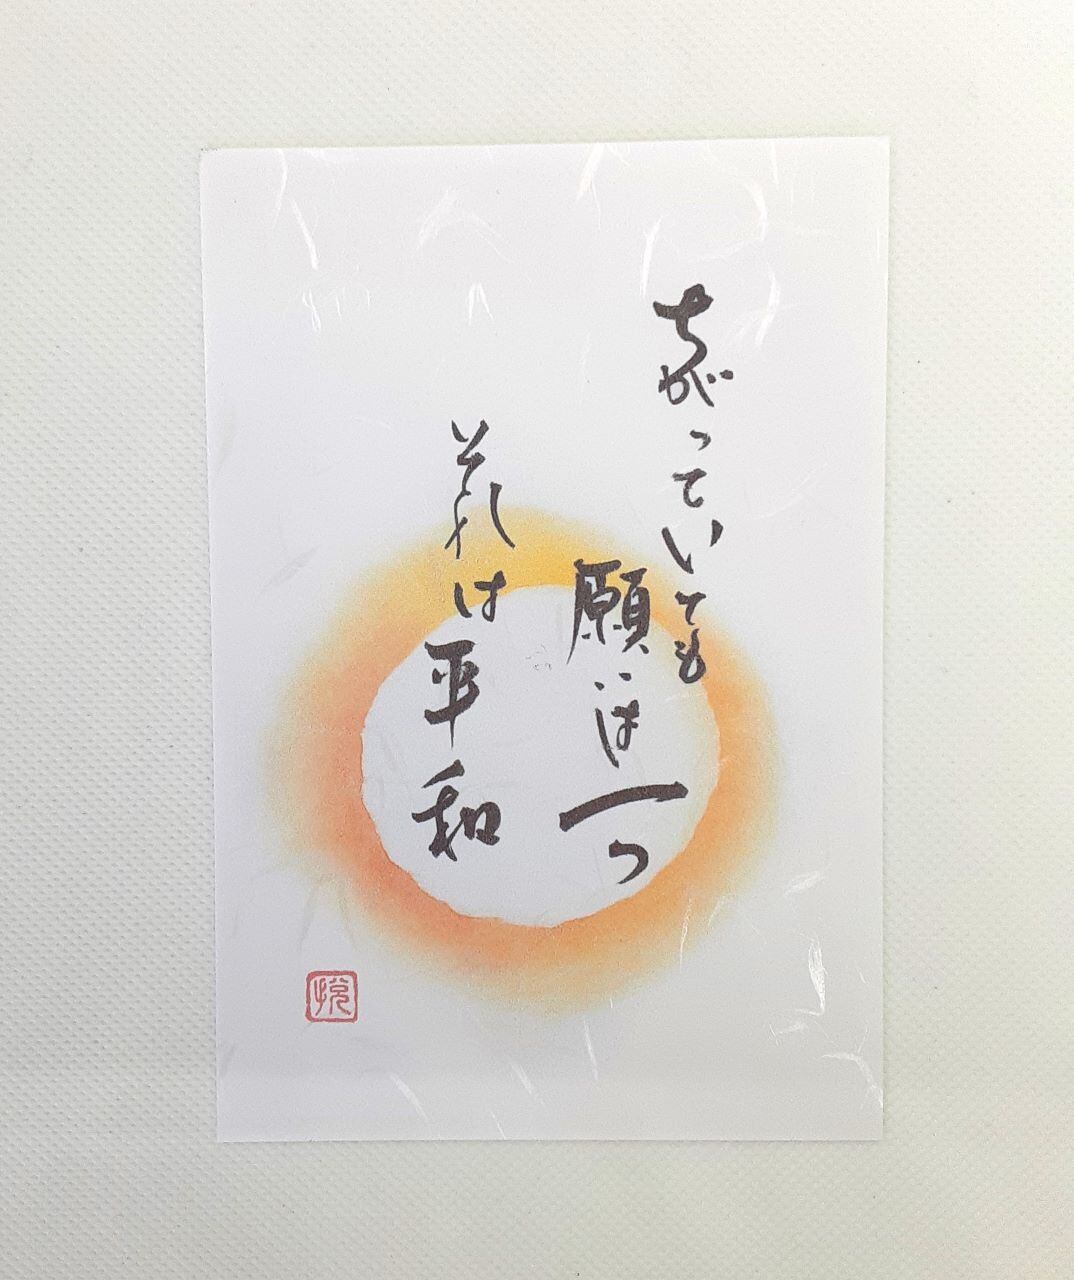 ちがっていても
願いは一つ
それは平和
悦